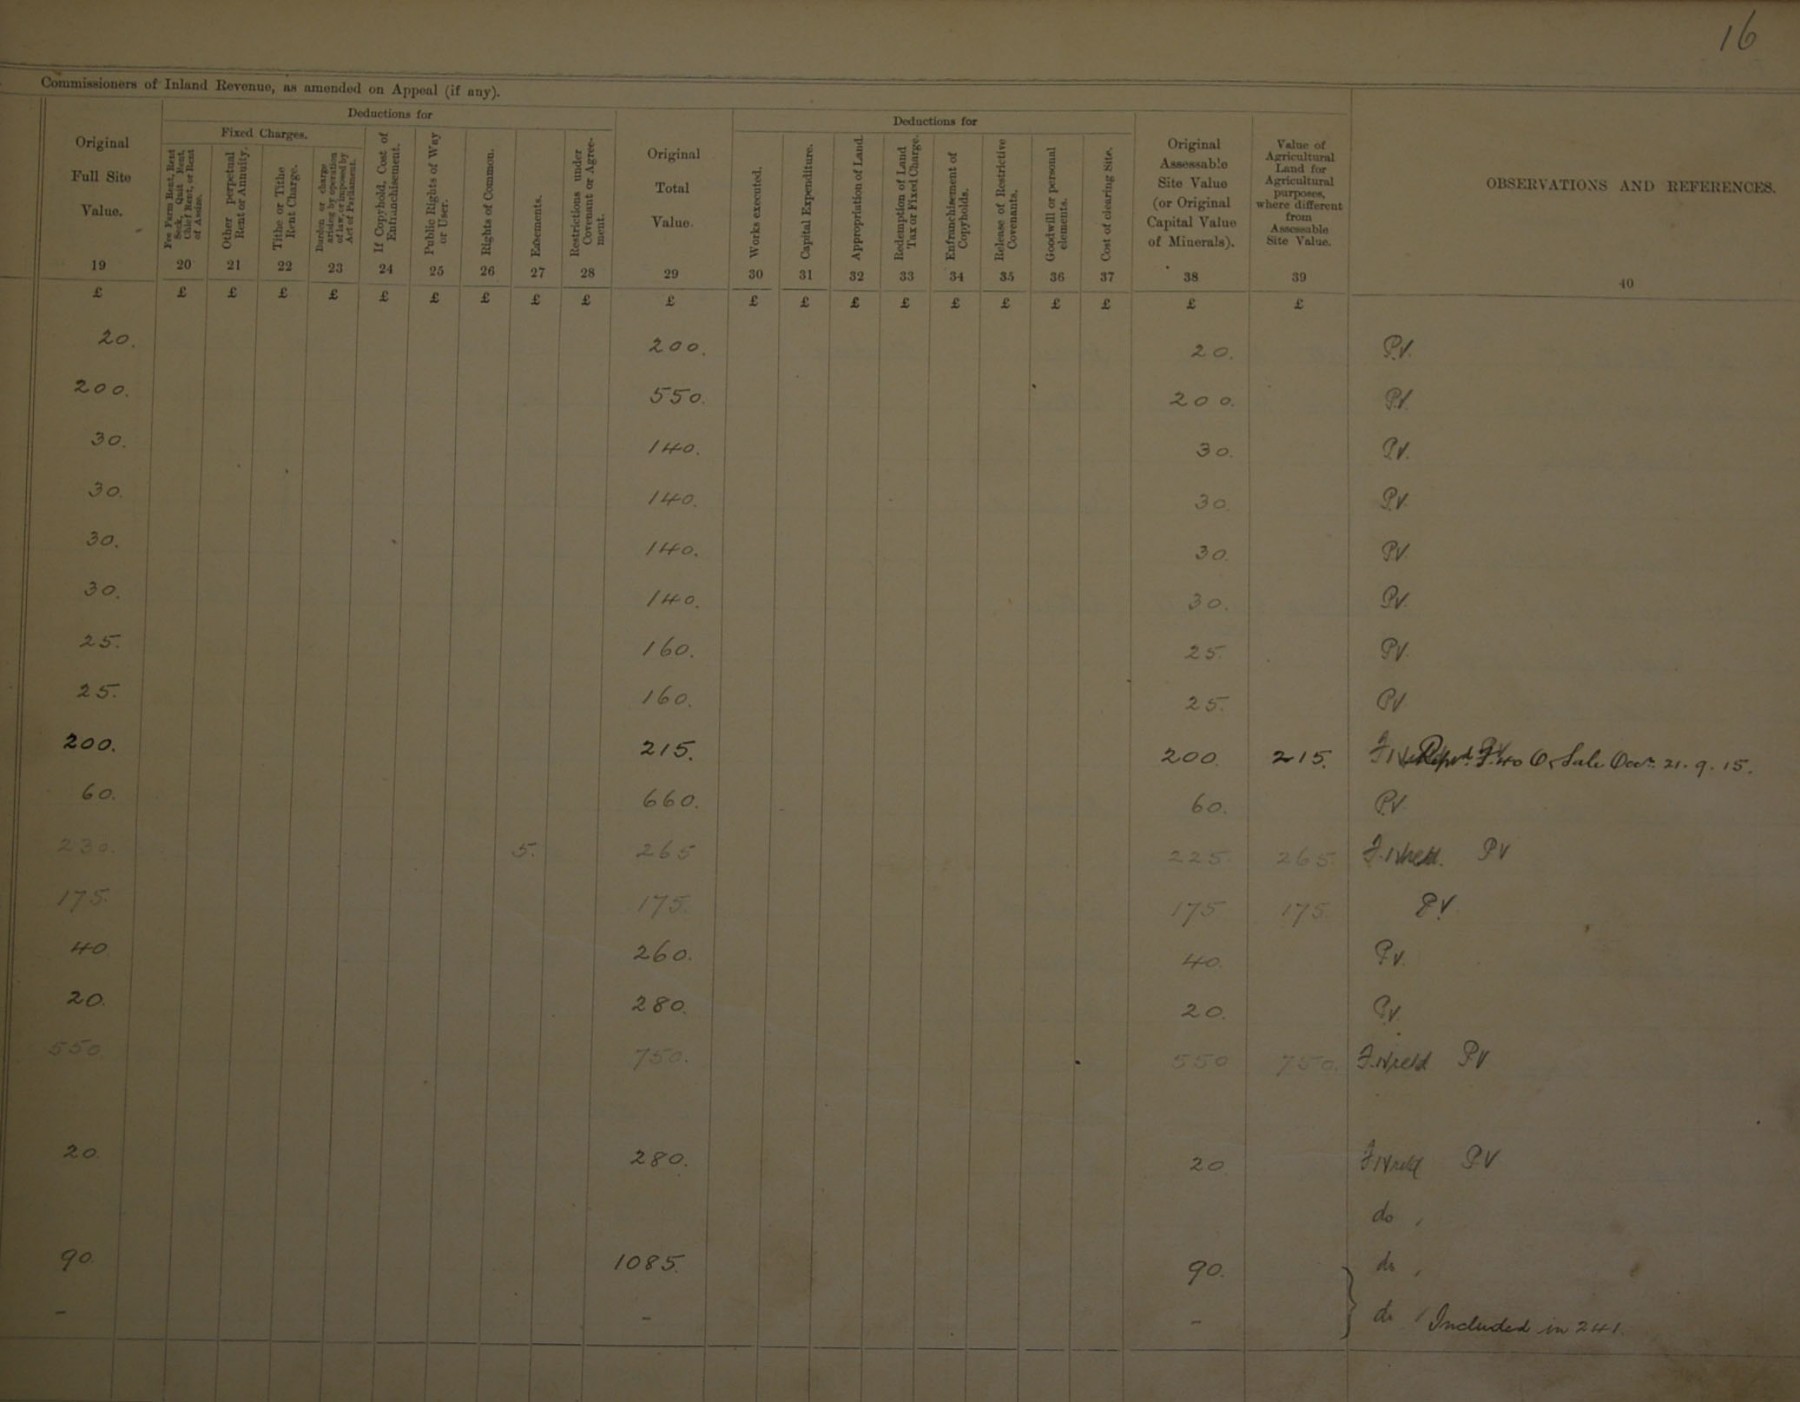 16
Commissioners of Inland Revenue, as amended on Appeal (if any).
Deductions for
Deductions for
Fixed Charges.
Original Full Site Value.
Fee Farm Rent, Rent Seck, Quit Rent, Chief Rent, or Rent of Assize.
Other perpetual Rent or Annuity.
Tithe or Tithe Rent Charge.
Burden or charge arising by operation of law, or imposed by Act of Parliament.
If Copyhold, Cost of Enfranchisement.
Public Rights of Way or User.
Rights of Common.
Easements.
Restrictions under Covenant or Agreement.
Original Total Value.
Works executed.
Capital Expenditure.
Appropriation of Land.
Redemption of Land Tax or Fixed Charge.
Enfranchisement of Copyholds.
Release of Restrictive Covenants.
Goodwill or personal elements.
Cost of clearing Site.
Original Assessable Site Value (or Original Capital Value of Minerals).
Value of Agricultural Land for Agricultural purposes, where different from Assessable Site Value.
OBSERVATIONS AND REFERENCES.
19 20 21 22 23 24 25 26 27 28 29 30 31 32 33 34 35 36 37 38 39 40
£ £ £ £ £ £ £ £ £ £ £ £ £ £ £ £ £ £ £ £ £
20. 200. 20. P.V.
200. 550. 200. P.V.
30. 140. 30. P.V.
30. 140. 30. P.V.
30. 140. 30. P.V.
30. 140. 30. P.V.
25. 160. 25. P.V.
25. 160. 25. P.V.
200. 215. 200. 215. Sale 21.9.15.
60. 660. 60. P.V.
230. 5. 265 225. 265. P.V
175. 175. 175 175. P.V
40 260. 40. P.V.
20. 280. 20. P.V.
550 750. 550 750. P.V
20. 280. 20. P.V
do
90 1085. 90. do
- - - do Included in 241.